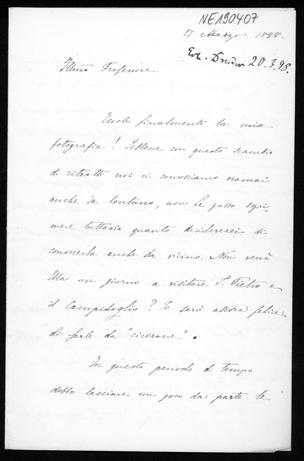 NE190407
17 Marzo 1898.
20.3.98.
Illmo Professore.
Eccole finalmente la mia
fotografia! Sebbene con questo scambio
di ritratti noi ci conosciamo oramai
anche da lontano, non Le posso espri-
mere tuttavia quanto desidererei di
conoscerla anche da vicino. Non verrà
Ella un giorno a visitare S. Pietro e
il Campidoglio? Io sarò allora felice
di farle da "cicerone".
In questo periodo di tempo
debbo lasciare un poco da parte le